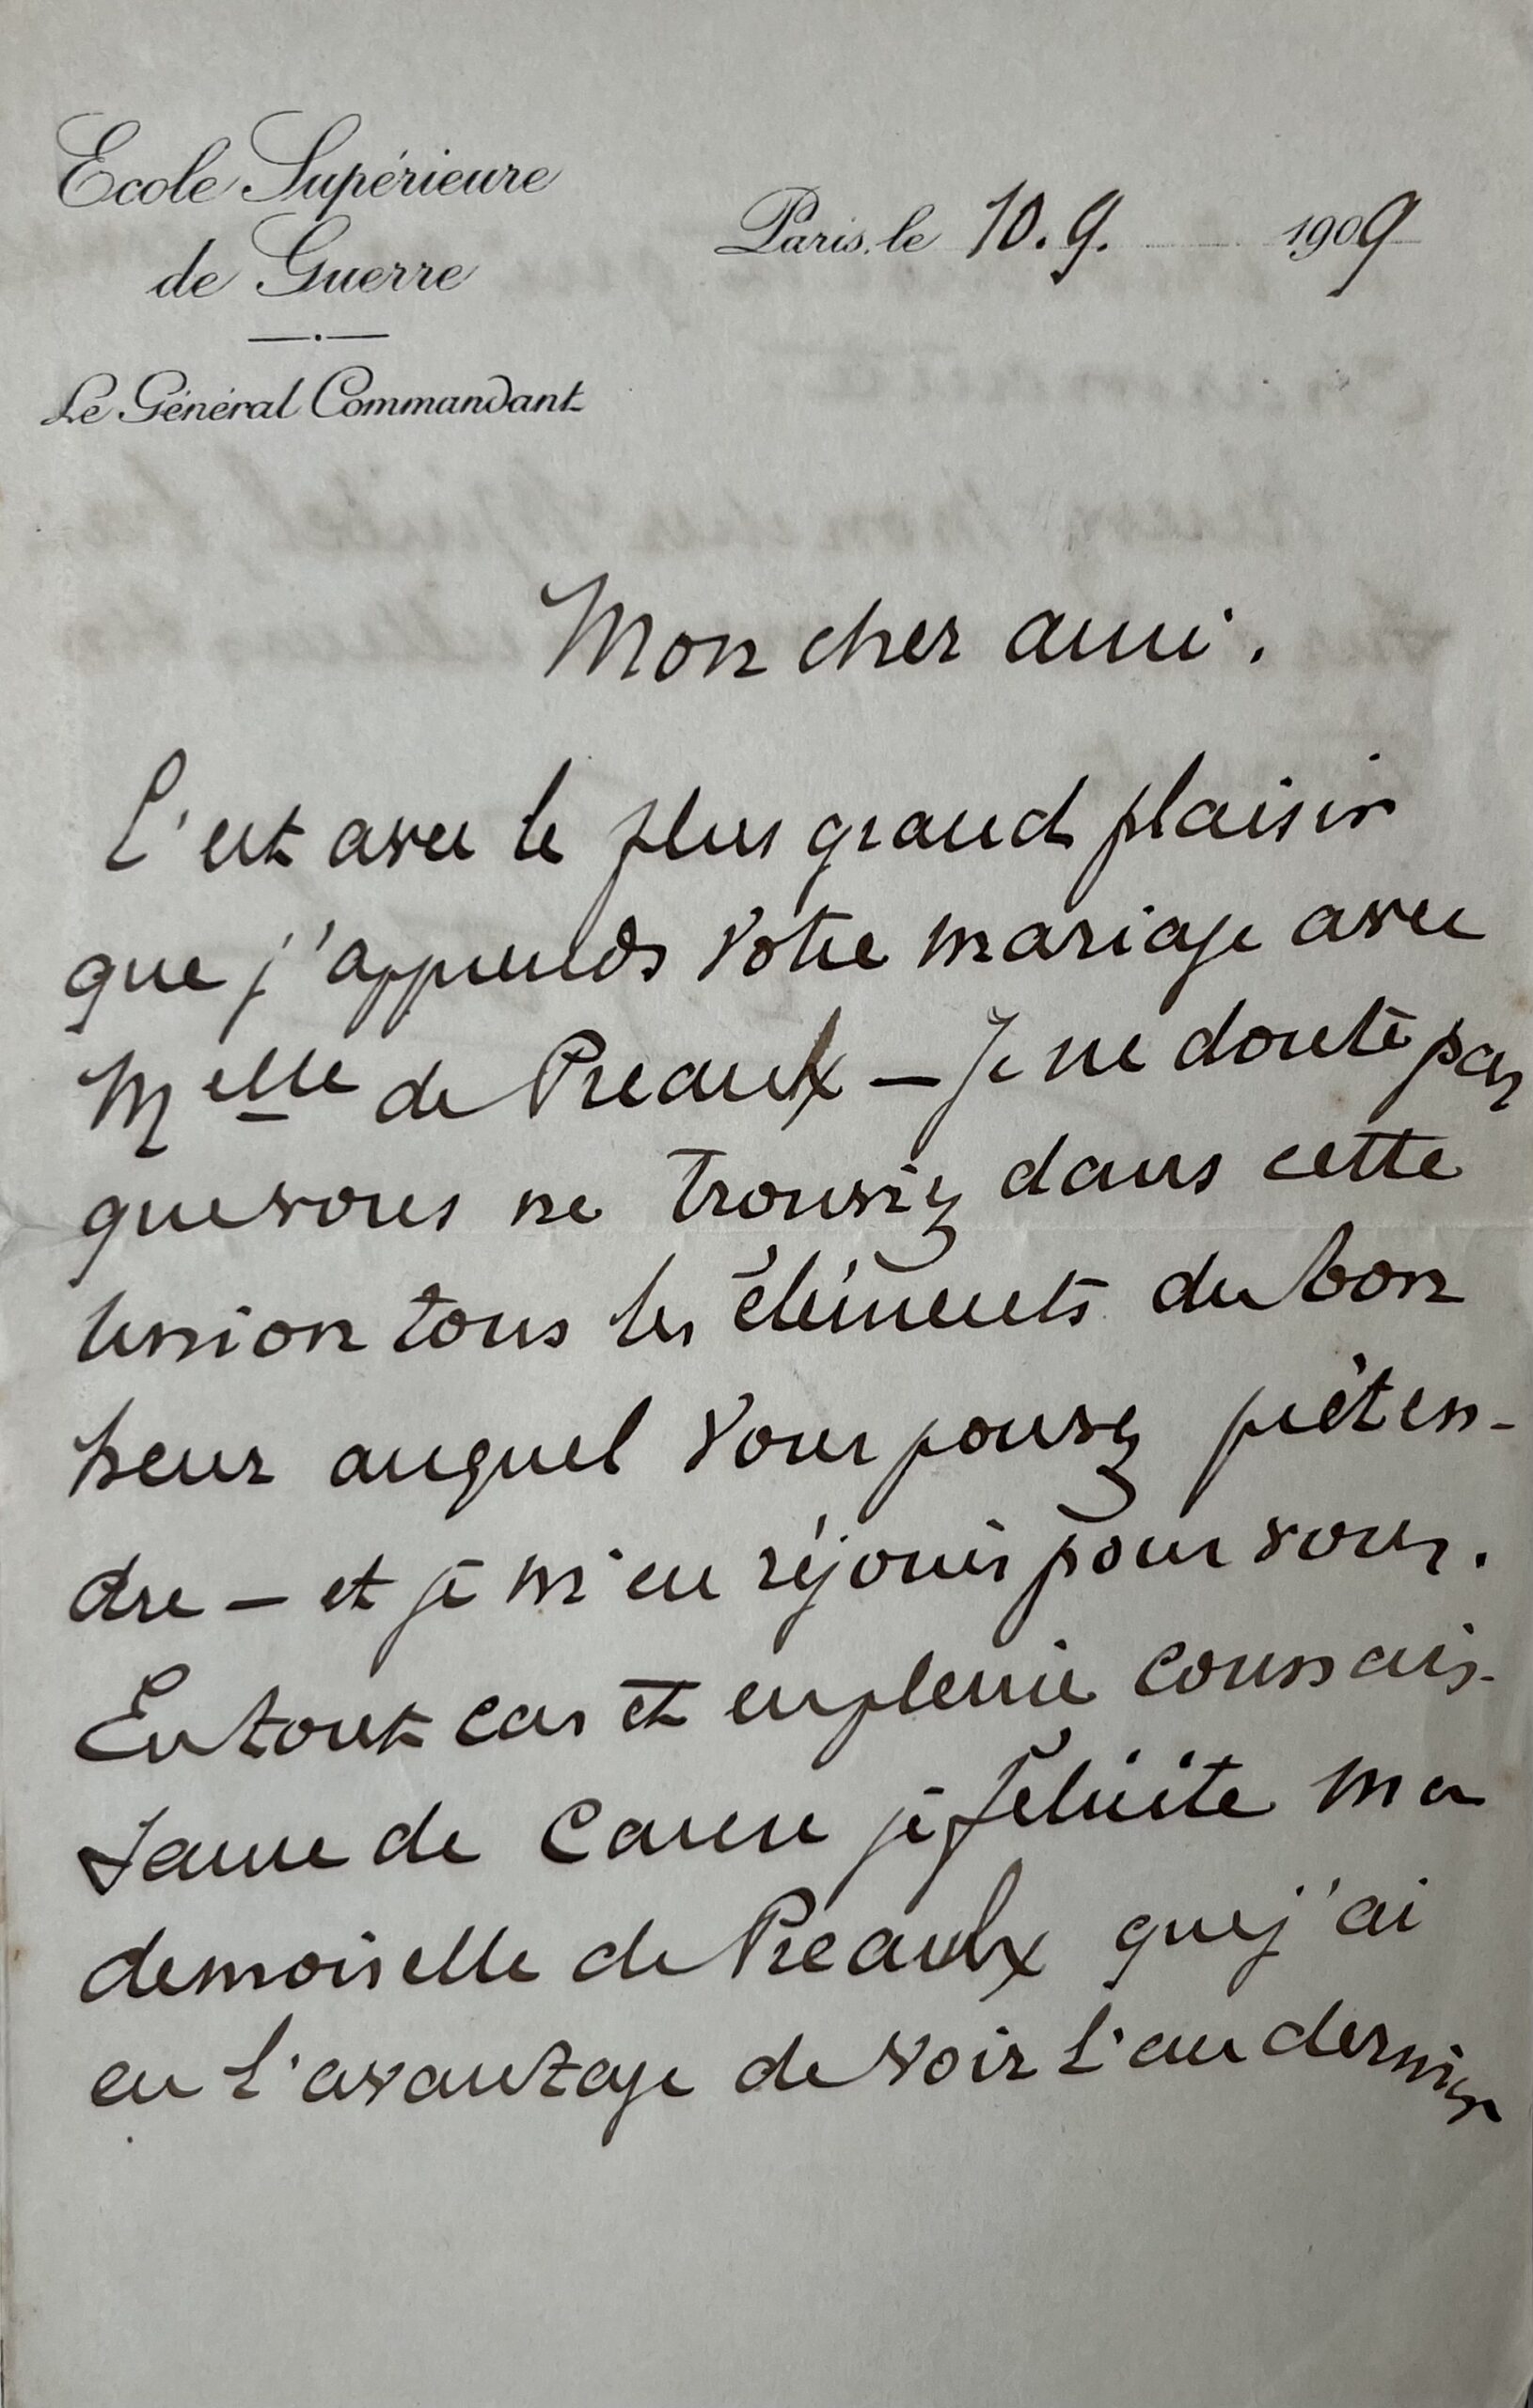 Ecole Supérieure
de Guerre
Le Général Commandant
Paris, le 10.9. 1909
Mon cher ami.
C'est avec le plus grand plaisir
que j'apprends votre mariage avec
Melle de Preaulx – Je ne doute pas
que vous ne trouviez dans cette
union tous les éléments du bon
heur auquel vous pouvez préten-
dre – et je m'en réjouis pour vous.
En tout cas et en pleine connais-
sance de cause je félicite ma
demoiselle de Preaulx que j'ai
eu l'avantage de voir l'an dernier